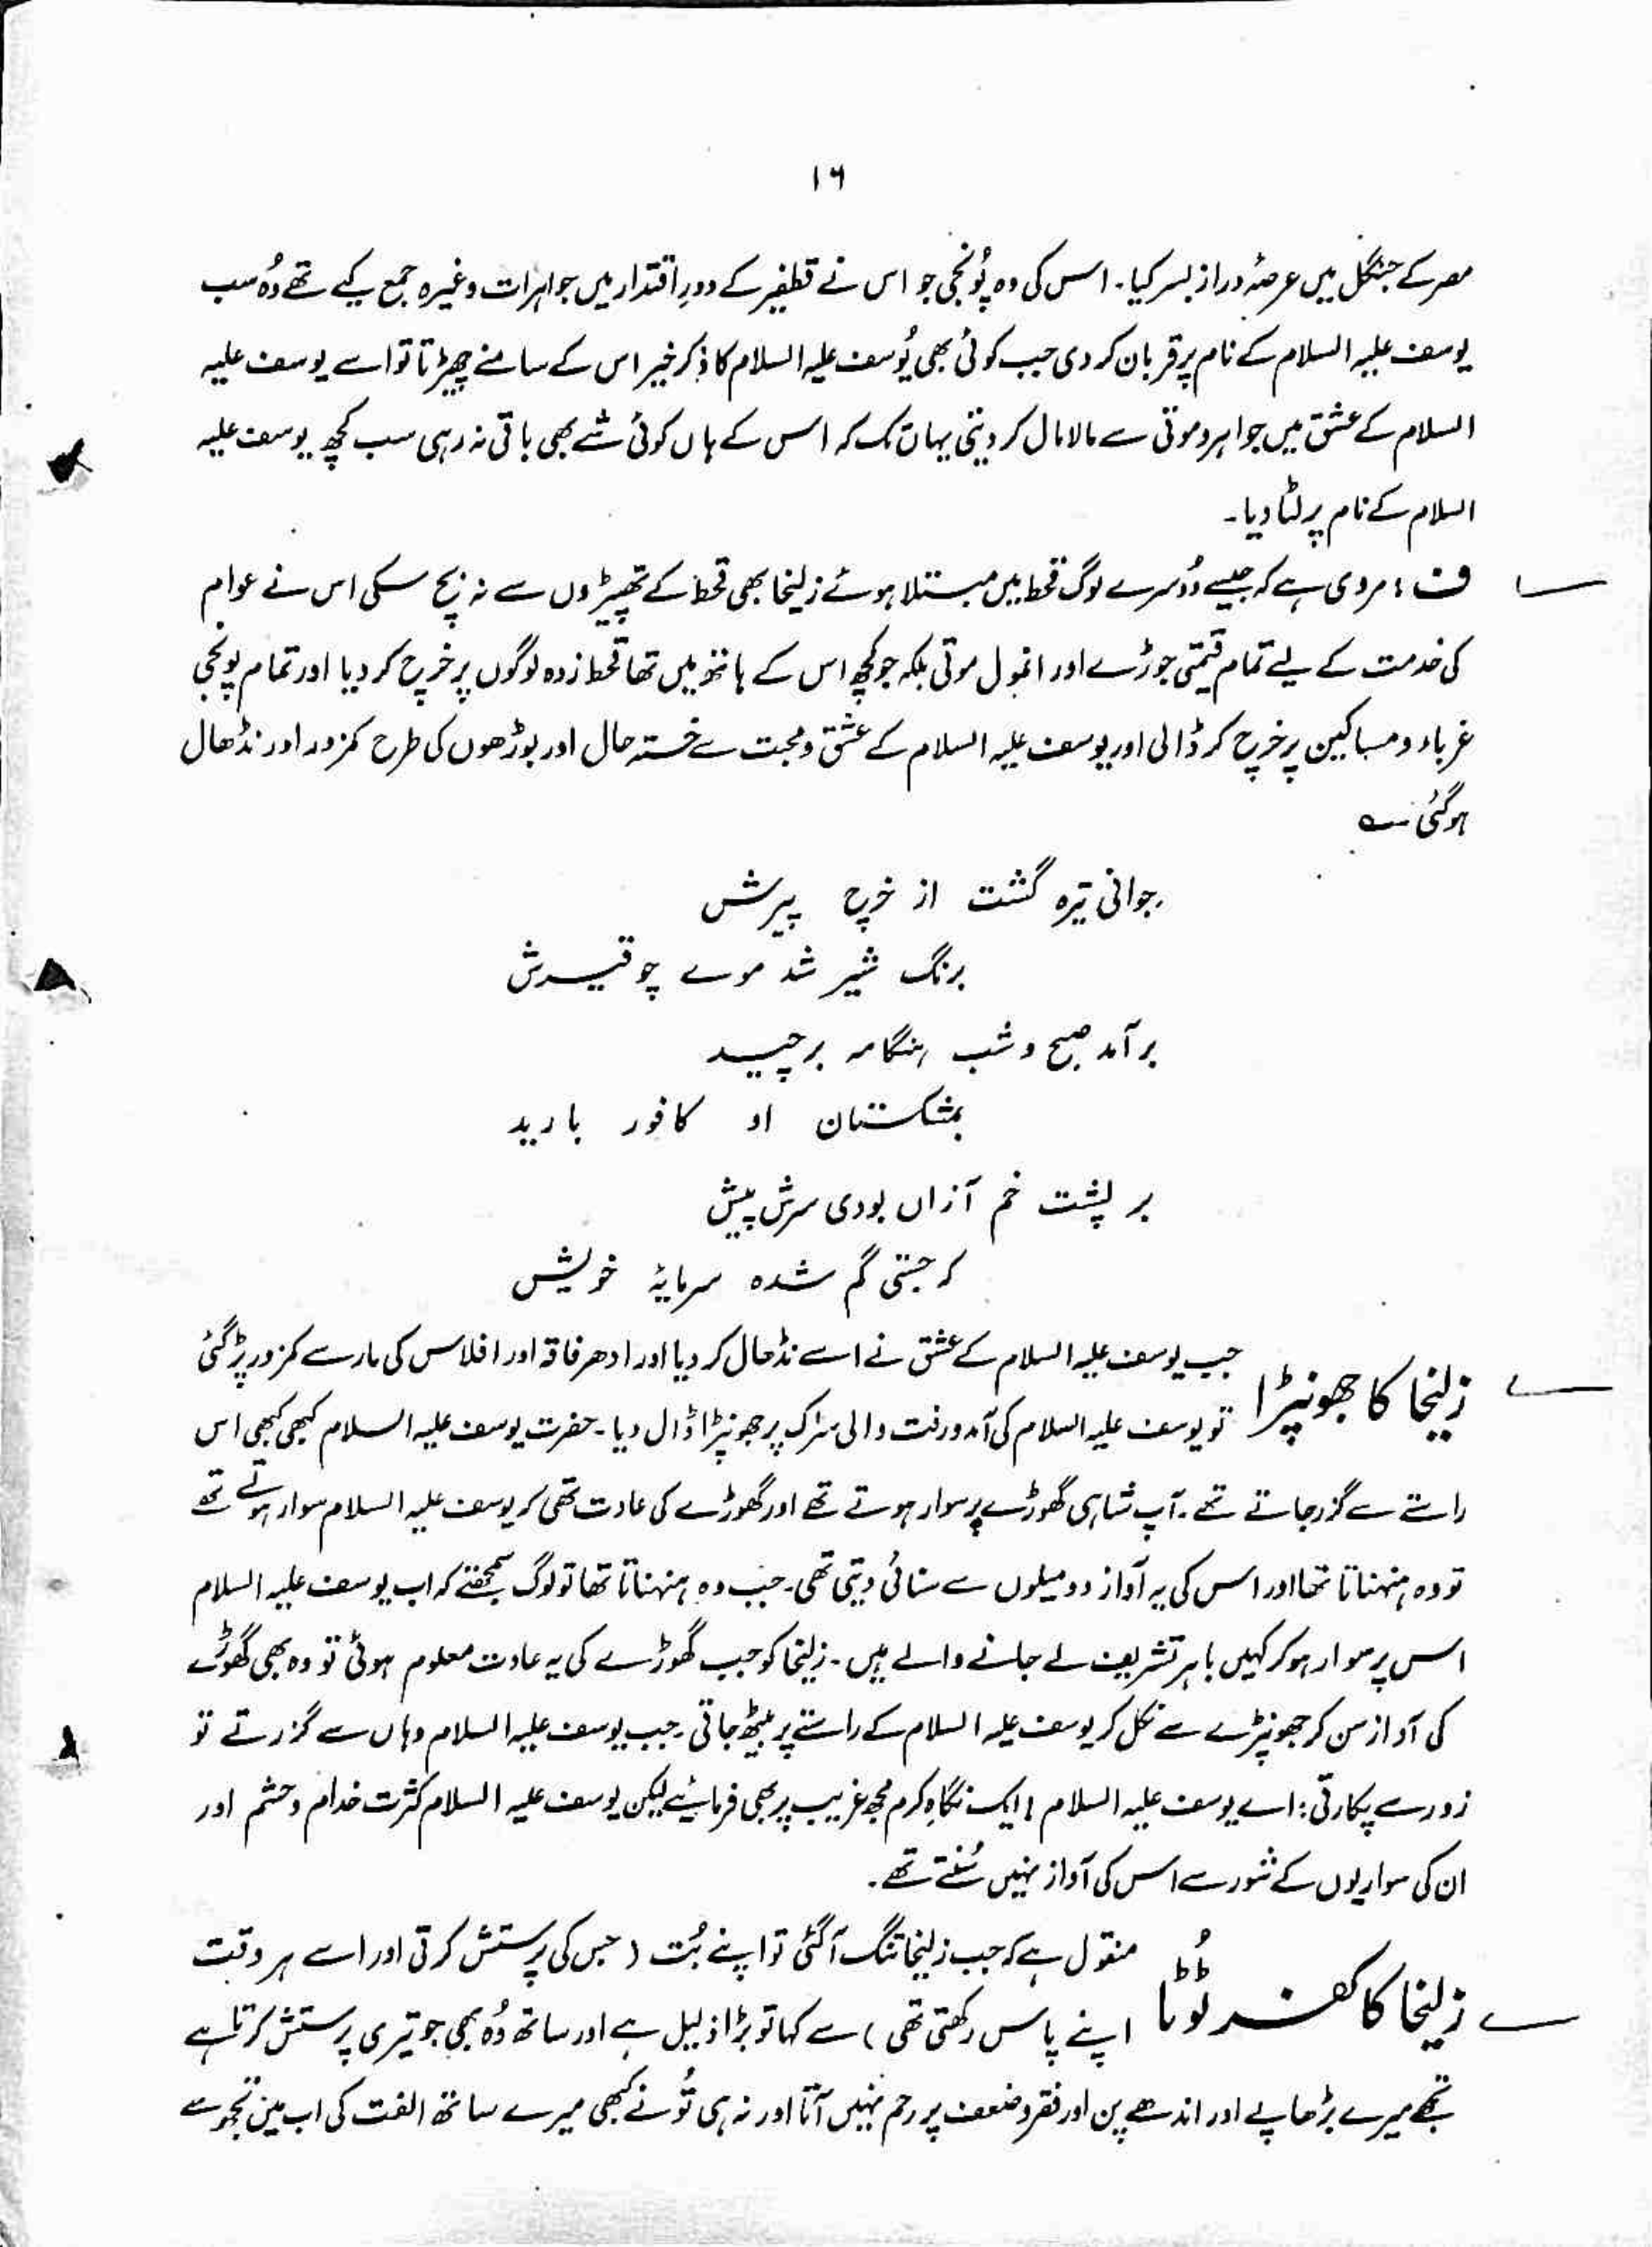 ۱۶
مصر کے جنگل میں عرصۂ دراز بسر کیا۔ اس کی وہ پُونجی جو اس نے قطفیر کے دورِ اقتدار میں جواہرات وغیرہ جمع کیے تھے وُہ سب
یوسف علیہ السلام کے نام پر قربان کر دی جب کوئی بھی یُوسف علیہ السلام کا ذکر خیر اس کے سامنے چھیڑتا تو اسے یوسف علیہ
السلام کے عشق میں جواہر و موتی سے مالا مال کر دیتی یہاں تک کہ اس کے ہاں کوئی شے بھی باقی نہ رہی سب کچھ یوسف علیہ
السلام کے نام پر لٹا دیا۔
ف : مروی ہے کہ جیسے دُوسرے لوگ قحط میں مبتلا ہوئے زلیخا بھی قحط کے تھپیڑوں سے نہ بچ سکی اس نے عوام
کی خدمت کے لیے تمام قیمتی جوڑے اور انمول موتی بلکہ جو کچھ اس کے ہاتھ میں تھا قحط زدہ لوگوں پر خرچ کر دیا اور تمام پونجی
غرباء و مساکین پر خرچ کر ڈالی اور یوسف علیہ السلام کے عشق و محبت سے خستہ حال اور بوڑھوں کی طرح کمزور اور نڈھال
ہو گئی ؎
جوانی تیرہ گشت از خرچ پیرش
برنگ شیر شد موے چو قیرش
بر آمد صبح و شب ہنگامہ برچید
بمشکستان او کافور بارید
بر پشت خم آزاں بودی سرش پیش
کہ جستی گم شدہ سرمایۂ خویش
زلیخا کا جھونپڑا جب یوسف علیہ السلام کے عشق نے اسے نڈھال کر دیا اور ادھر فاقہ اور افلاس کی مار سے کمزور پڑ گئی
تو یوسف علیہ السلام کی آمد و رفت والی سڑک پر جھونپڑا ڈال دیا۔ حضرت یوسف علیہ السلام کبھی کبھی اس
راستے سے گزر جاتے تھے۔ آپ شاہی گھوڑے پر سوار ہوتے تھے اور گھوڑے کی عادت تھی کہ یوسف علیہ السلام سوار ہوتے تھے
تو وہ ہنہناتا تھا اور اس کی یہ آواز دو میلوں سے سنائی دیتی تھی۔ جب وہ ہنہناتا تھا تو لوگ سمجھتے کہ اب یوسف علیہ السلام
اس پر سوار ہو کر کہیں باہر تشریف لے جانے والے ہیں۔ زلیخا کو جب گھوڑے کی یہ عادت معلوم ہوئی تو وہ بھی گھوڑے
کی آواز سن کر جھونپڑے سے نکل کر یوسف علیہ السلام کے راستے پر بیٹھ جاتی۔ جب یوسف علیہ السلام وہاں سے گزرتے تو
زور سے پکارتی : اے یوسف علیہ السلام ! ایک نگاہِ کرم مجھ غریب پر بھی فرمائیے لیکن یوسف علیہ السلام کثرت خدام و حشم اور
ان کی سواریوں کے شور سے اس کی آواز نہیں سُنتے تھے۔
زلیخا کا کفر ٹوٹا منقول ہے کہ جب زلیخا تنگ آ گئی تو اپنے بُت ( جس کی پرستش کرتی اور اسے ہر وقت
اپنے پاس رکھتی تھی ) سے کہا تو بڑا ذلیل ہے اور ساتھ وُہ بھی جو تیری پرستش کرتا ہے
تجھے میرے بڑھاپے اور اندھے پن اور فقر و ضعف پر رحم نہیں آتا اور نہ ہی تُو نے کبھی میرے ساتھ الفت کی اب میں تجھ سے